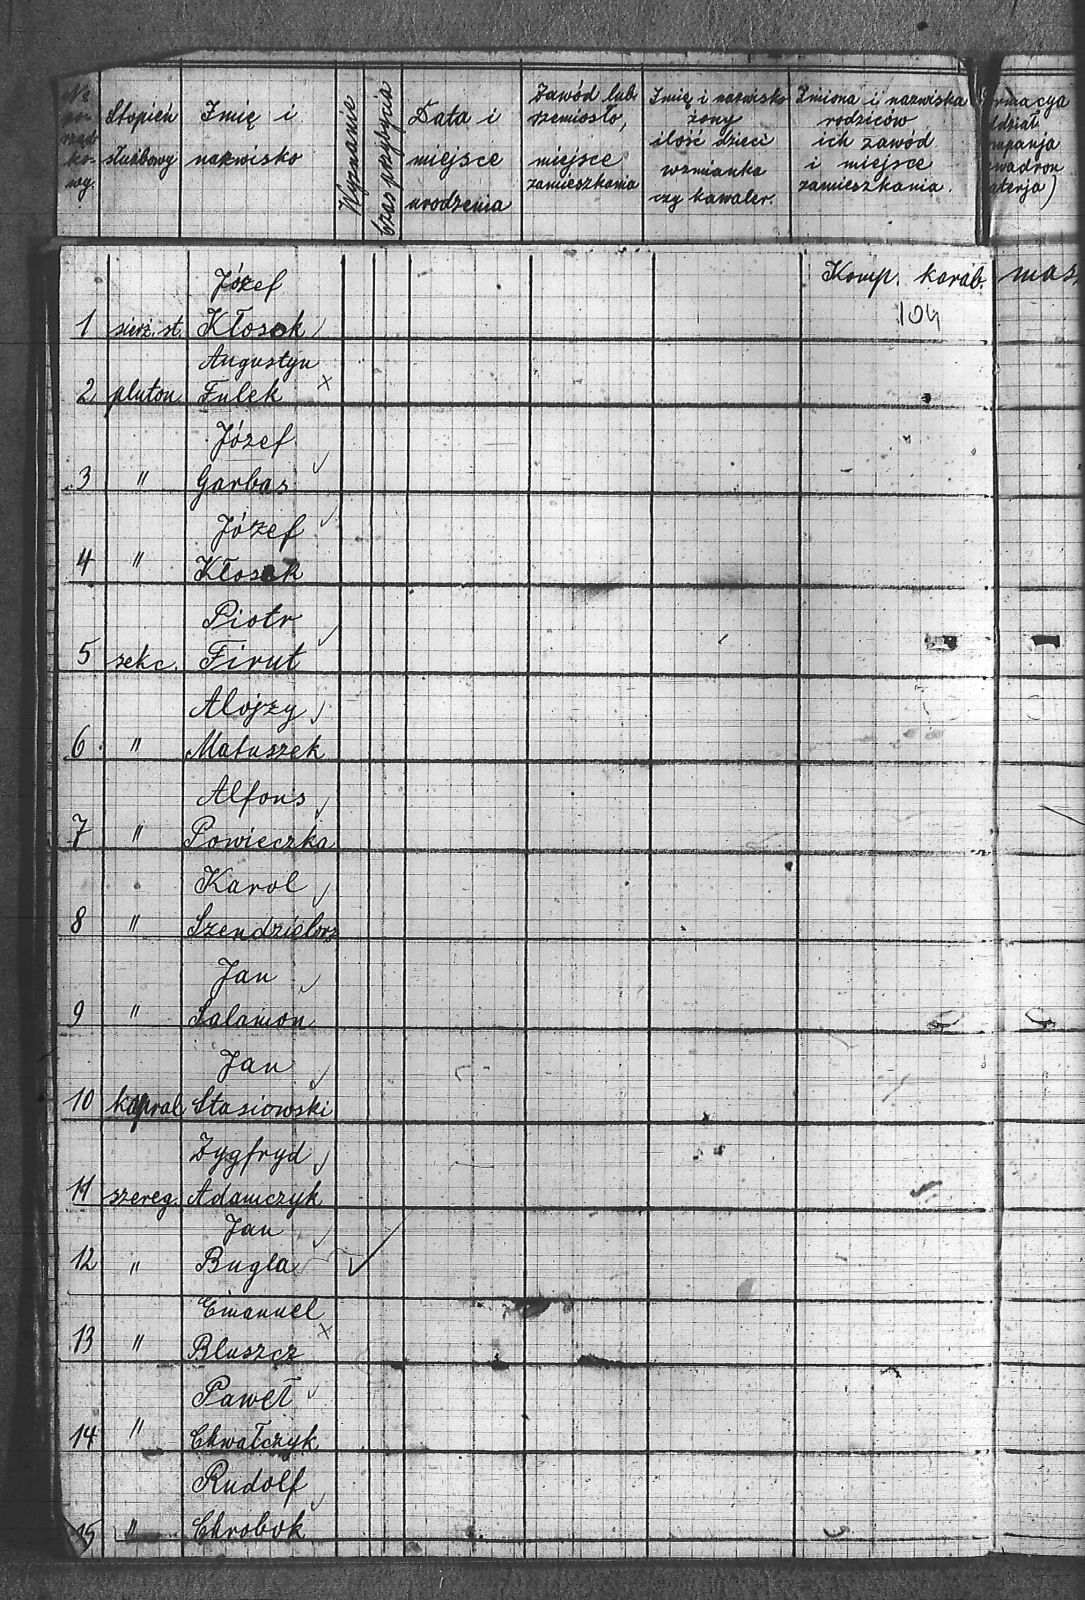 № po- rząd- ko- wy.
Stopień służbowy
Imię i nazwisko
Wyznanie
Czas przybycia
Data i miejsce urodzenia
Zawód lub rzemiosło, miejsce zamieszkania
Imię i nazwisko żony ilość dzieci wzmianka czy kawaler.
Imiona i nazwiska rodziców ich zawód i miejsce zamieszkania.
rmacya
ddział
mpanja
wadron
aterja)
Komp. karab. mas.
104
Józef
1 sierż. st. Kłosok
Augustyn
2 pluton Fulek x
Józef
3 " Garbas
Józef
4 " Kłosok
Piotr
5 sekc. Firut
Alojzy
6 " Matuszek
Alfons
7 " Powieczka
Karol
8 " Szendzielorz
Jan
9 " Salamon
Jan
10 kapral Stasiowski
Zygfryd
11 szereg. Adamczyk
Jan
12 " Bugla
Emanuel
13 " Bluszcz x
Paweł
14 " Chwałczyk
Rudolf
15 " Chrobok